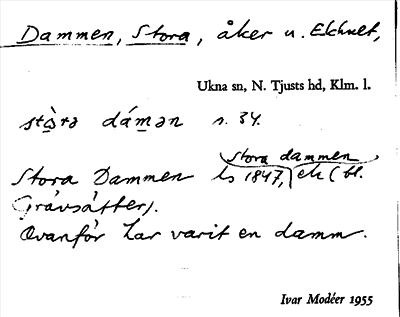 Dammen, Stora, åker u. Ekhult,
Ukna sn, N. Tjusts hd, Klm. l.
stòrə dámən s. 34.
stora dammen
Stora Dammen ls 1847, ek (bl.
Grávsåtter).
Ovanför har varit en damm.
Ivar Modéer 1955